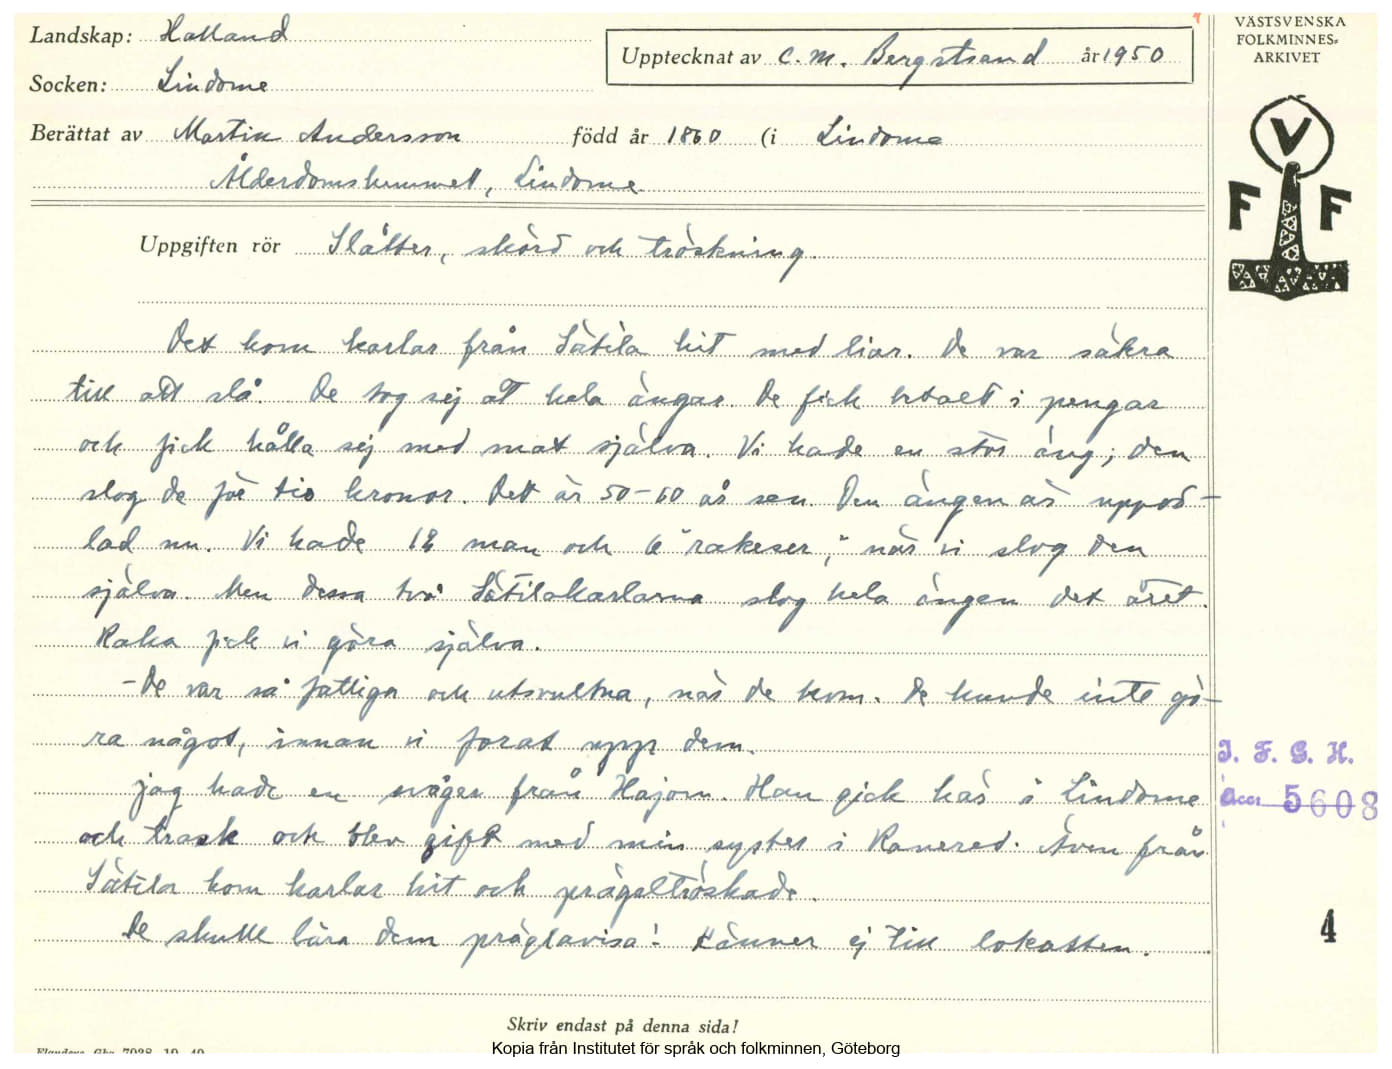 Landskap: Halland
Upptecknat av C. M. Bergstrand år 1950
VÄSTSVENSKA
FOLKMINNES-
ARKIVET
Socken: Lindome
Berättat av Martin Andersson född år 1860 (i Lindome
Ålderdomshemmet, Lindome
V
F F
Uppgiften rör Slåtter, skörd och tröskning.
Det kom karlar från Sätila hit med liar. De var säkra
till att slå. De tog sej att hela ängar. De fick betalt i pengar
och fick hålla sej med mat själva. Vi hade en stor äng; den
slog de för tio kronor. Det är 50-60 år sen. Den ängen är uppod-
lad nu. Vi hade 12 man och 6 "rakeser", när vi slog den
själva. Men dessa två Sätilakarlarna slog hela ängen det året.
Raka fick vi göra själva.
-De var så fattiga och utsvultna, när de kom. De kunde inte gö-
ra något, innan vi forat upp dem.
Jag hade en svåger från Hajom. Han gick här i Lindome
och trask och blev gift med min syster i Ranered. Även från
Sätila kom karlar hit och prägeltröskade.
De skulle lära dem präglavisa! Känner ej till lokatten.
I. F. G. H.
Acc. 5608
4
Skriv endast på denna sida!
Elanders Gbg 7938 10 49
Kopia från Institutet för språk och folkminnen, Göteborg